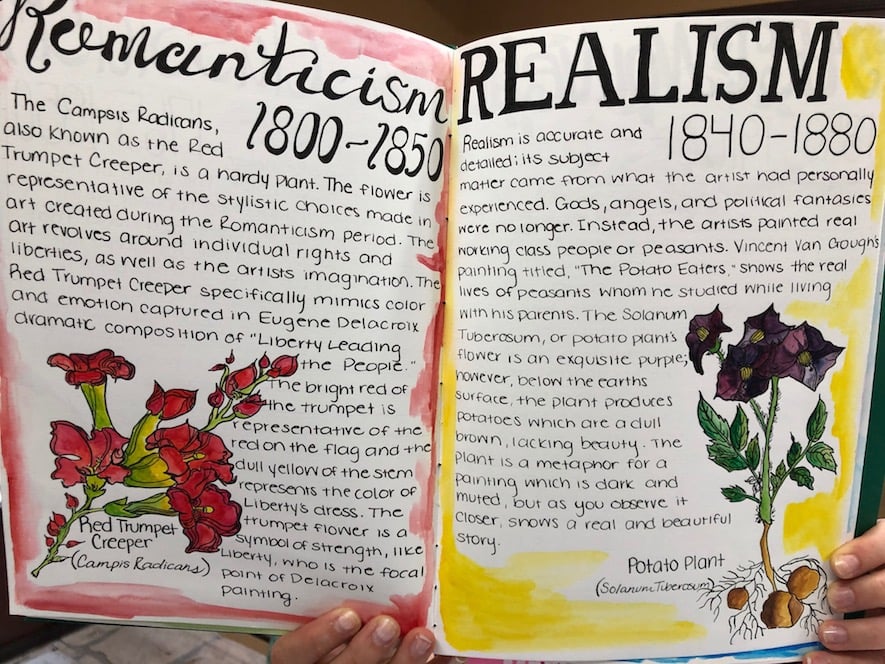 Romanticism
1800-1850
The Campsis Radicans,
also known as the Red
Trumpet Creeper, is a hardy plant. The flower is
representative of the stylistic choices made in
art created during the Romanticism period. The
art revolves around individual rights and
liberties, as well as the artists imagination. The
Red Trumpet Creeper specifically mimics color
and emotion captured in Eugene Delacroix
dramatic composition of "Liberty Leading
the People."
The bright red of
the trumpet is
representative of the
red on the flag and the
dull yellow of the stem
represents the color of
Liberty's dress. The
trumpet flower is a
symbol of strength, like
Liberty, who is the focal
point of Delacroix
painting.
Red Trumpet
Creeper
(Campis Radicans)
REALISM
1840-1880
Realism is accurate and
detailed; its subject
matter came from what the artist had personally
experienced. Gods, angels, and political fantasies
were no longer. Instead, the artists painted real
working class people or peasants. Vincent Van Gough's
painting titled, "The Potato Eaters," shows the real
lives of peasants whom he studied while living
with his parents. The Solanum
Tuberosum, or potato plant's
flower is an exquisite purple;
however, below the earths
surface, the plant produces
potatoes which are a dull
brown, lacking beauty. The
plant is a metaphor for a
painting which is dark and
muted, but as you observe it
closer, shows a real and beautiful
story.
Potato Plant
(Solanum Tuberosum)